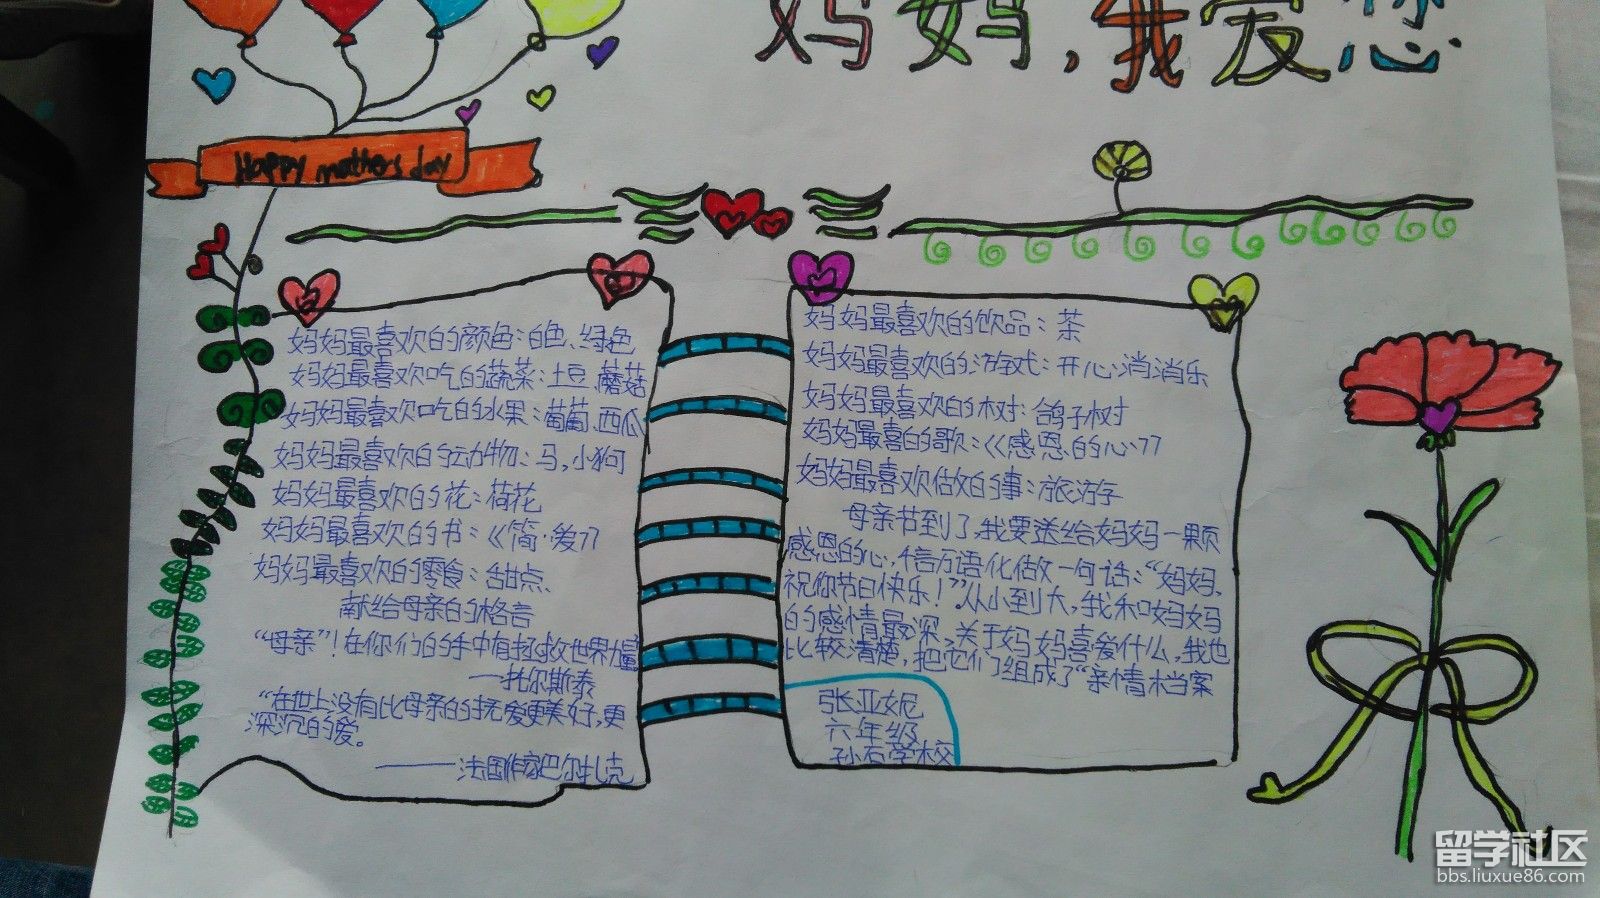 妈妈,我爱您
Happy mathers day
妈妈最喜欢的颜色:白色、绿色
妈妈最喜欢吃的蔬菜:土豆 蘑菇
妈妈最喜欢吃的水果:葡萄、西瓜
妈妈最喜欢的动物:马,小狗
妈妈最喜欢的花:荷花
妈妈最喜欢的书:《简·爱》
妈妈最喜欢的零食:甜点
献给母亲的格言
“母亲”!在你们的手中有拯救世界力量
——托尔斯泰
“在世上没有比母亲的抚爱更美好,更
深沉的爱。
——法国作家巴尔扎克
妈妈最喜欢的饮品:茶
妈妈最喜欢的游戏:开心消消乐
妈妈最喜欢的树:鸽子树
妈妈最喜的歌:《感恩的心》
妈妈最喜欢做的事:旅游
母亲节到了,我要送给妈妈一颗
感恩的心,千言万语化做一句话:“妈妈,
祝你节日快乐!”从小到大,我和妈妈
的感情最深,关于妈妈喜爱什么,我也
比较清楚,把它们组成了“亲情档案
张亚妮
六年级
孙石学校
留学社区
bbs.liuxue86.com